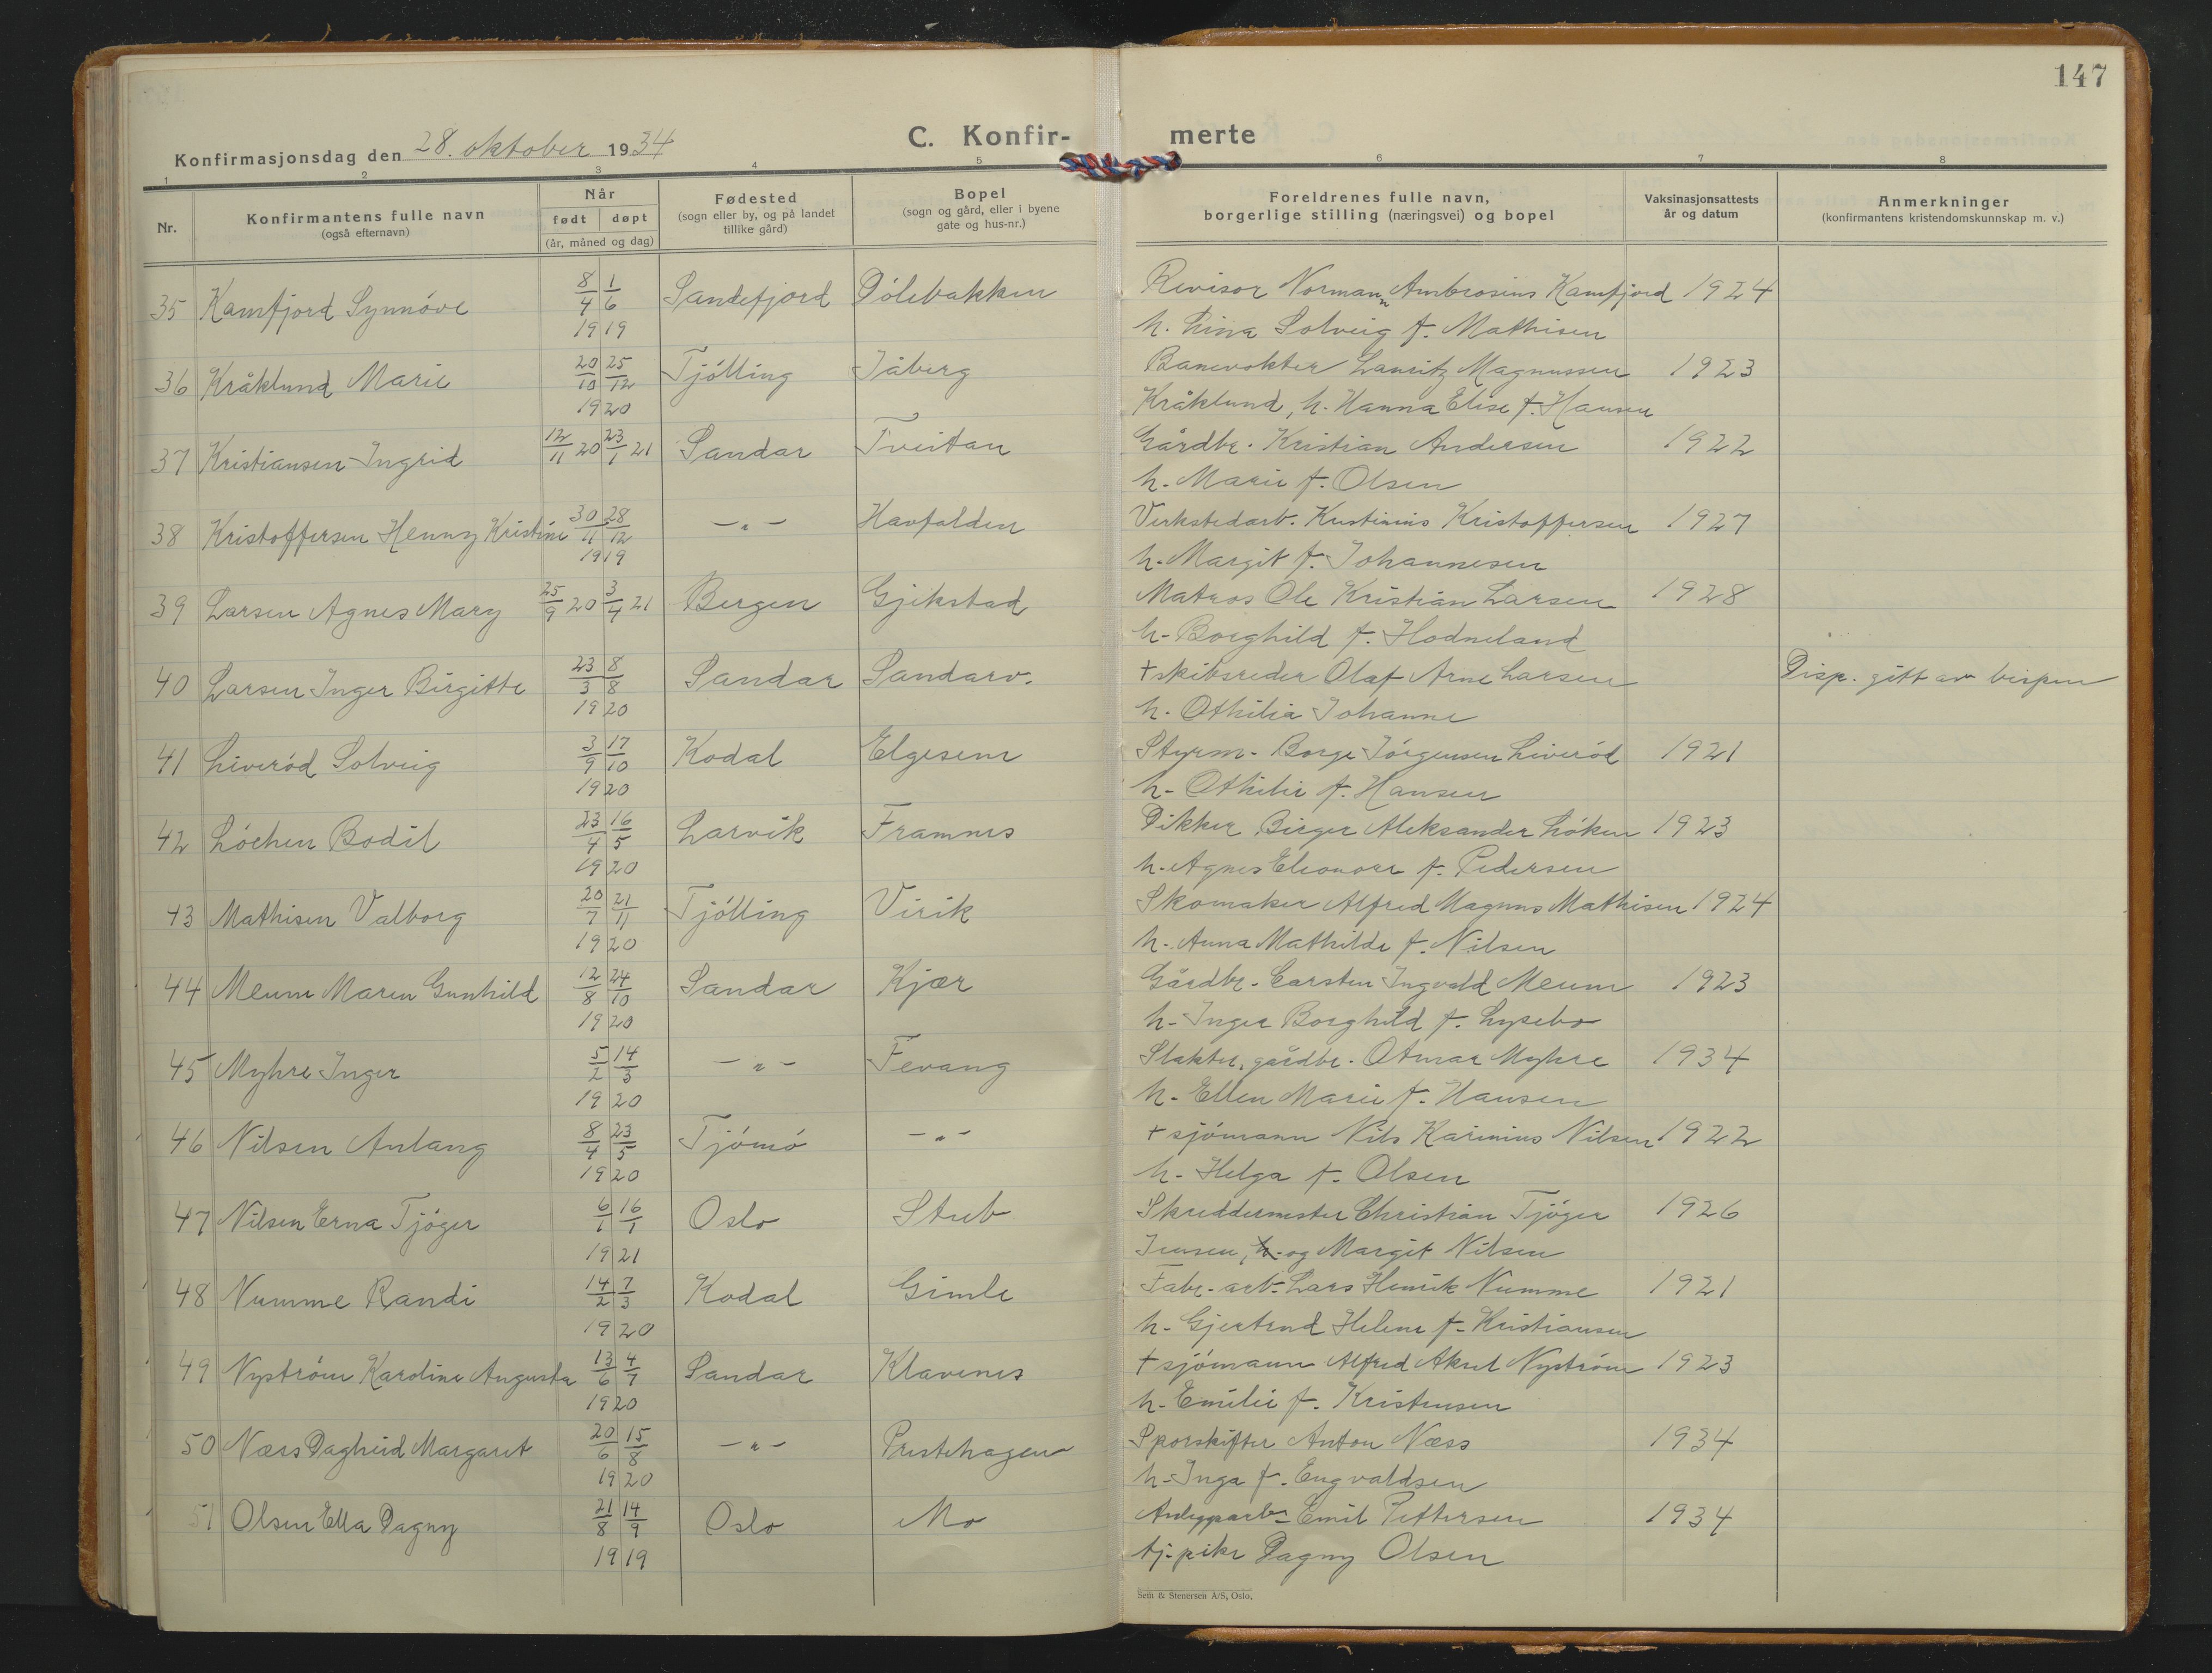 147
Konfirmasjonsdag den 28. oktober 1934
C. Konfir- merte
1 2 3 4 5 6 7 8
Nr.
Konfirmantens fulle navn
(også efternavn)
Når
født døpt
(år, måned og dag)
Fødested
(sogn eller by, og på landet
tillike gård)
Bopel
(sogn og gård, eller i byene
gate og hus-nr.)
Foreldrenes fulle navn,
borgerlige stilling (næringsvei) og bopel
Vaksinasjonsattests
år og datum
Anmerkninger
(konfirmantens kristendomskunnskap m. v.)
35 Kamfjord Synnöve 8/4 1/6 1919 Sandefjord Dölebakken Revisor Normann Ambrosius Kamfjord 1924
h. Lina Solveig f. Mathisen
36 Kråklund Marie 20/10 25/12 1920 Tjölling Jåberg Banevokter Lauritz Magnussen 1923
Kråklund, h. Hanna Elise f. Hansen
37 Kristiansen Ingrid 12/11 20 23/1 21 Sandar Tveitan Gårdbr. Kristian Andersen 1922
h. Marie f. Olsen
38 Kristoffersen Henny Kristine 30/11 28/12 1919 -"- Havfalden Verkstedarb. Kristoffersen 1927
h. Margit f. Johannesen
39 Larsen Agnes Mary 25/9 20 3/4 21 Bergen Gjekstad Matros Ole Kristian Larsen 1928
h. Borghild f. Hodneland
40 Larsen Inger Birgitte 23/3 8/8 1920 Sandar Sandarv. + skibsreder Olaf Arne Larsen Disp. gitt av bispen
h. Othilia Johanne
41 Liveröd Solveig 3/9 17/10 1920 Kodal Elgesem Styrm. Borge Jörgensen Liveröd 1921
h. Othilie f. Hansen
42 Löchen Bodil 23/4 16/5 1920 Larvik Framnes Dikker Birger Aleksander Löken 1923
h. Agnes Eleonore f. Pedersen
43 Mathisen Valborg 20/7 21/11 1920 Tjölling Virik Skomaker Alfred Magnus Mathisen 1924
h. Anna Mathilde f. Nilsen
44 Meum Maren Gunhild 12/8 24/10 1920 Sandar Kjær Gårdbr. Carsten Ingvald Meum 1923
h. Inger Borghild f. Lysebo
45 Myhre Inger 5/2 14/3 1920 -"- Fevang Slakter, gårdbr. Otmar Myhre 1934
h. Ellen Marie f. Hansen
46 Nilsen Anlaug 8/4 23/5 1920 Tjömö -"- + sjömann Nils Karinius Nilsen 1922
h. Helga f. Olsen
47 Nilsen Erna Tjöger 6/1 16/1 1921 Oslo Stub Skreddermester Christian Tjöger 1926
Jensen, h. og Margit Nilsen
48 Numme Randi 14/2 7/3 1920 Kodal Gimle Fabr. arb. Lars Henrik Numme 1921
h. Gjertrud Helene f. Kristiansen
49 Nyström Karoline Augusta 13/6 4/7 1920 Sandar Klavenes + sjömann Alfred Aksel Nyström 1923
h. Emilie f. Kristensen
50 Næss Dagheid Margaret 20/6 15/8 1920 -"- Prestehagen Sporskifter Anton Næss 1934
h. Inga f. Engvaldsen
51 Olsen Ella Dagny 21/8 14/9 1919 Oslo Mo Anleggsarb. Emil Pettersen 1934
tj. pike Dagny Olsen
Sem & Stenersen A/S, Oslo.